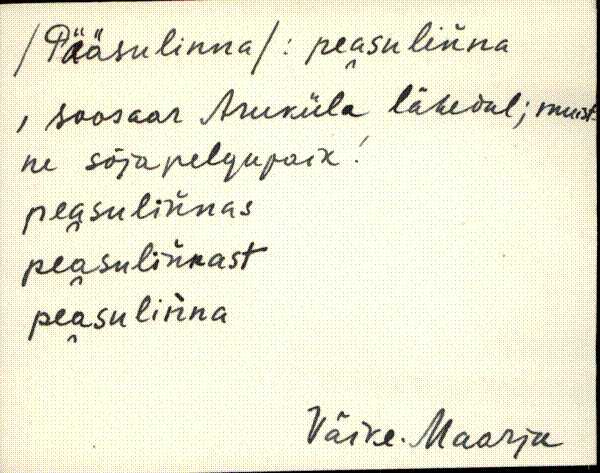 /Pääsulinna/: pea̭suliǹna
, soosaar Aruküla lähedal; muist-
ne sõjapelgupaik!
pea̭suliǹnas
pea̭suliǹnast
pea̭suliǹna
Väike-Maarja